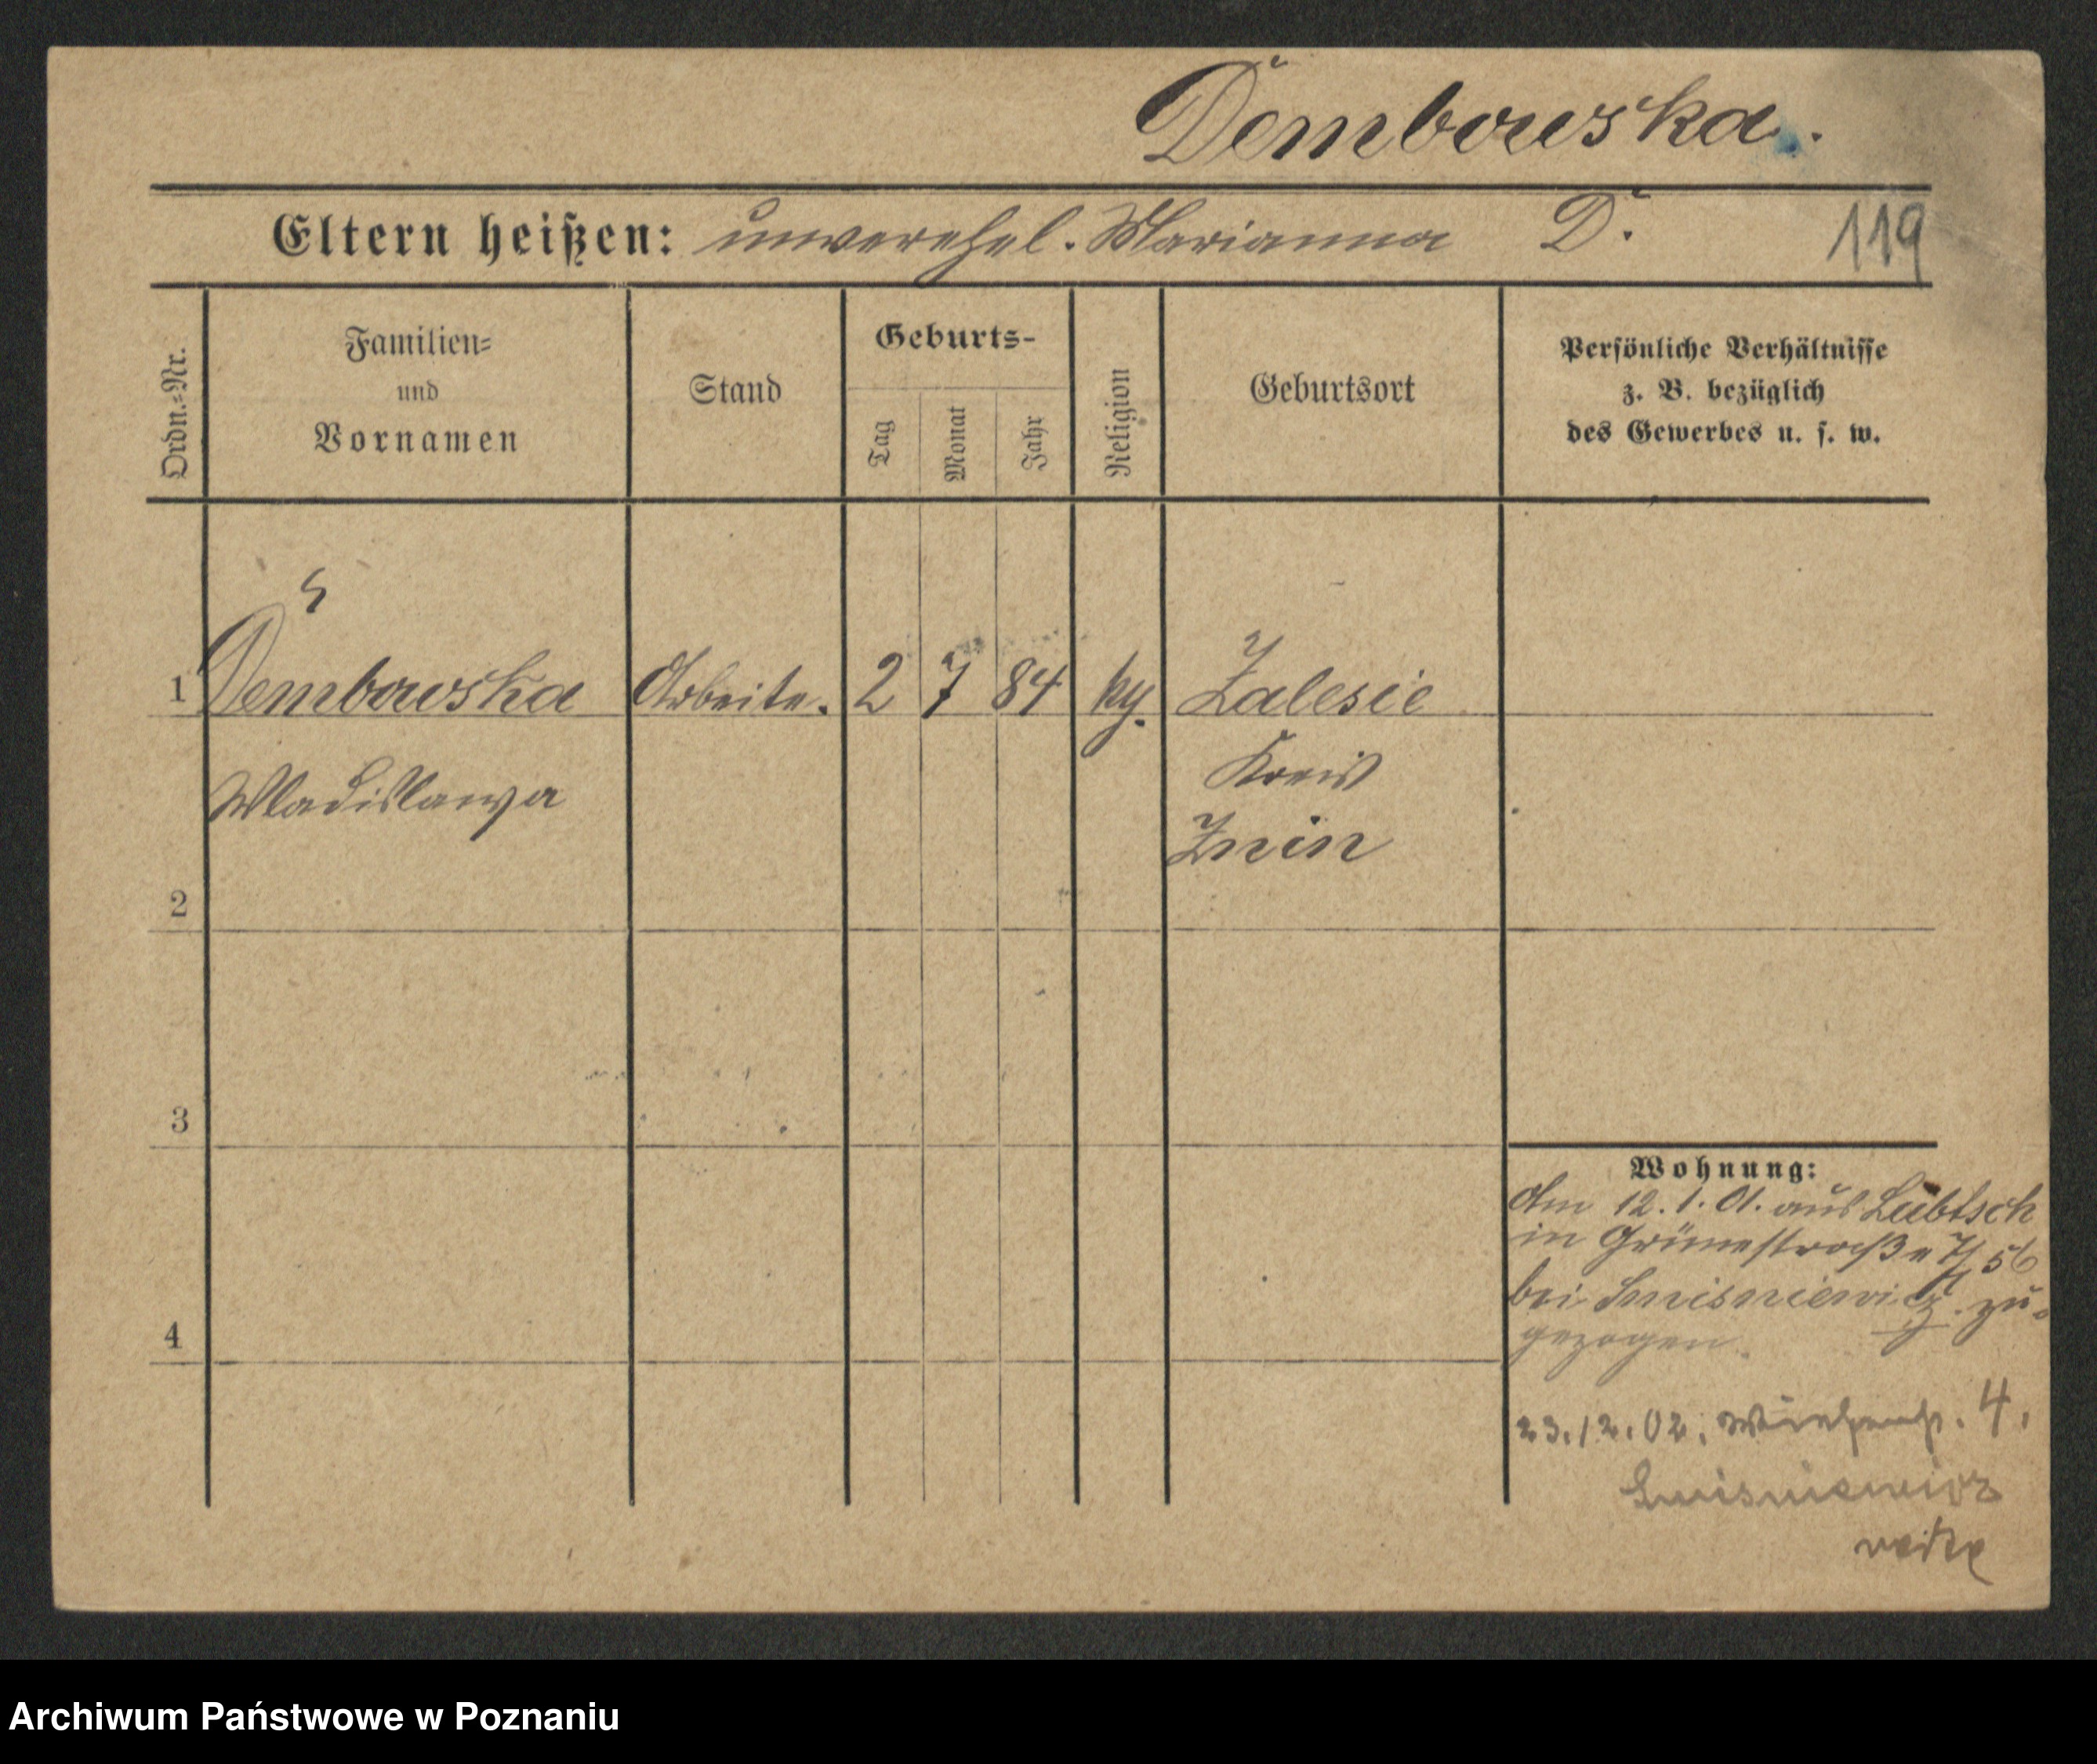 Dembowska.
Eltern heißen: unverehel. Marianna D.
119
Ordn.=Nr.
Familien=
und
Vornamen
Stand
Geburts-
Tag
Monat
Jahr
Religion
Geburtsort
Persönliche Verhältnisse
z. B. bezüglich
des Gewerbes u. s. w.
1 Dembowska Arbeite. 2 7 84 kg. Zalesie
Wladislawa
Kreis
Znin
2
3
4
Wohnung:
Am 12. 1. 01. aus Lübtsch
in Grünestraße 56
bei zu=
gezogen.
23.12.02. 4.
Archiwum Państwowe w Poznaniu